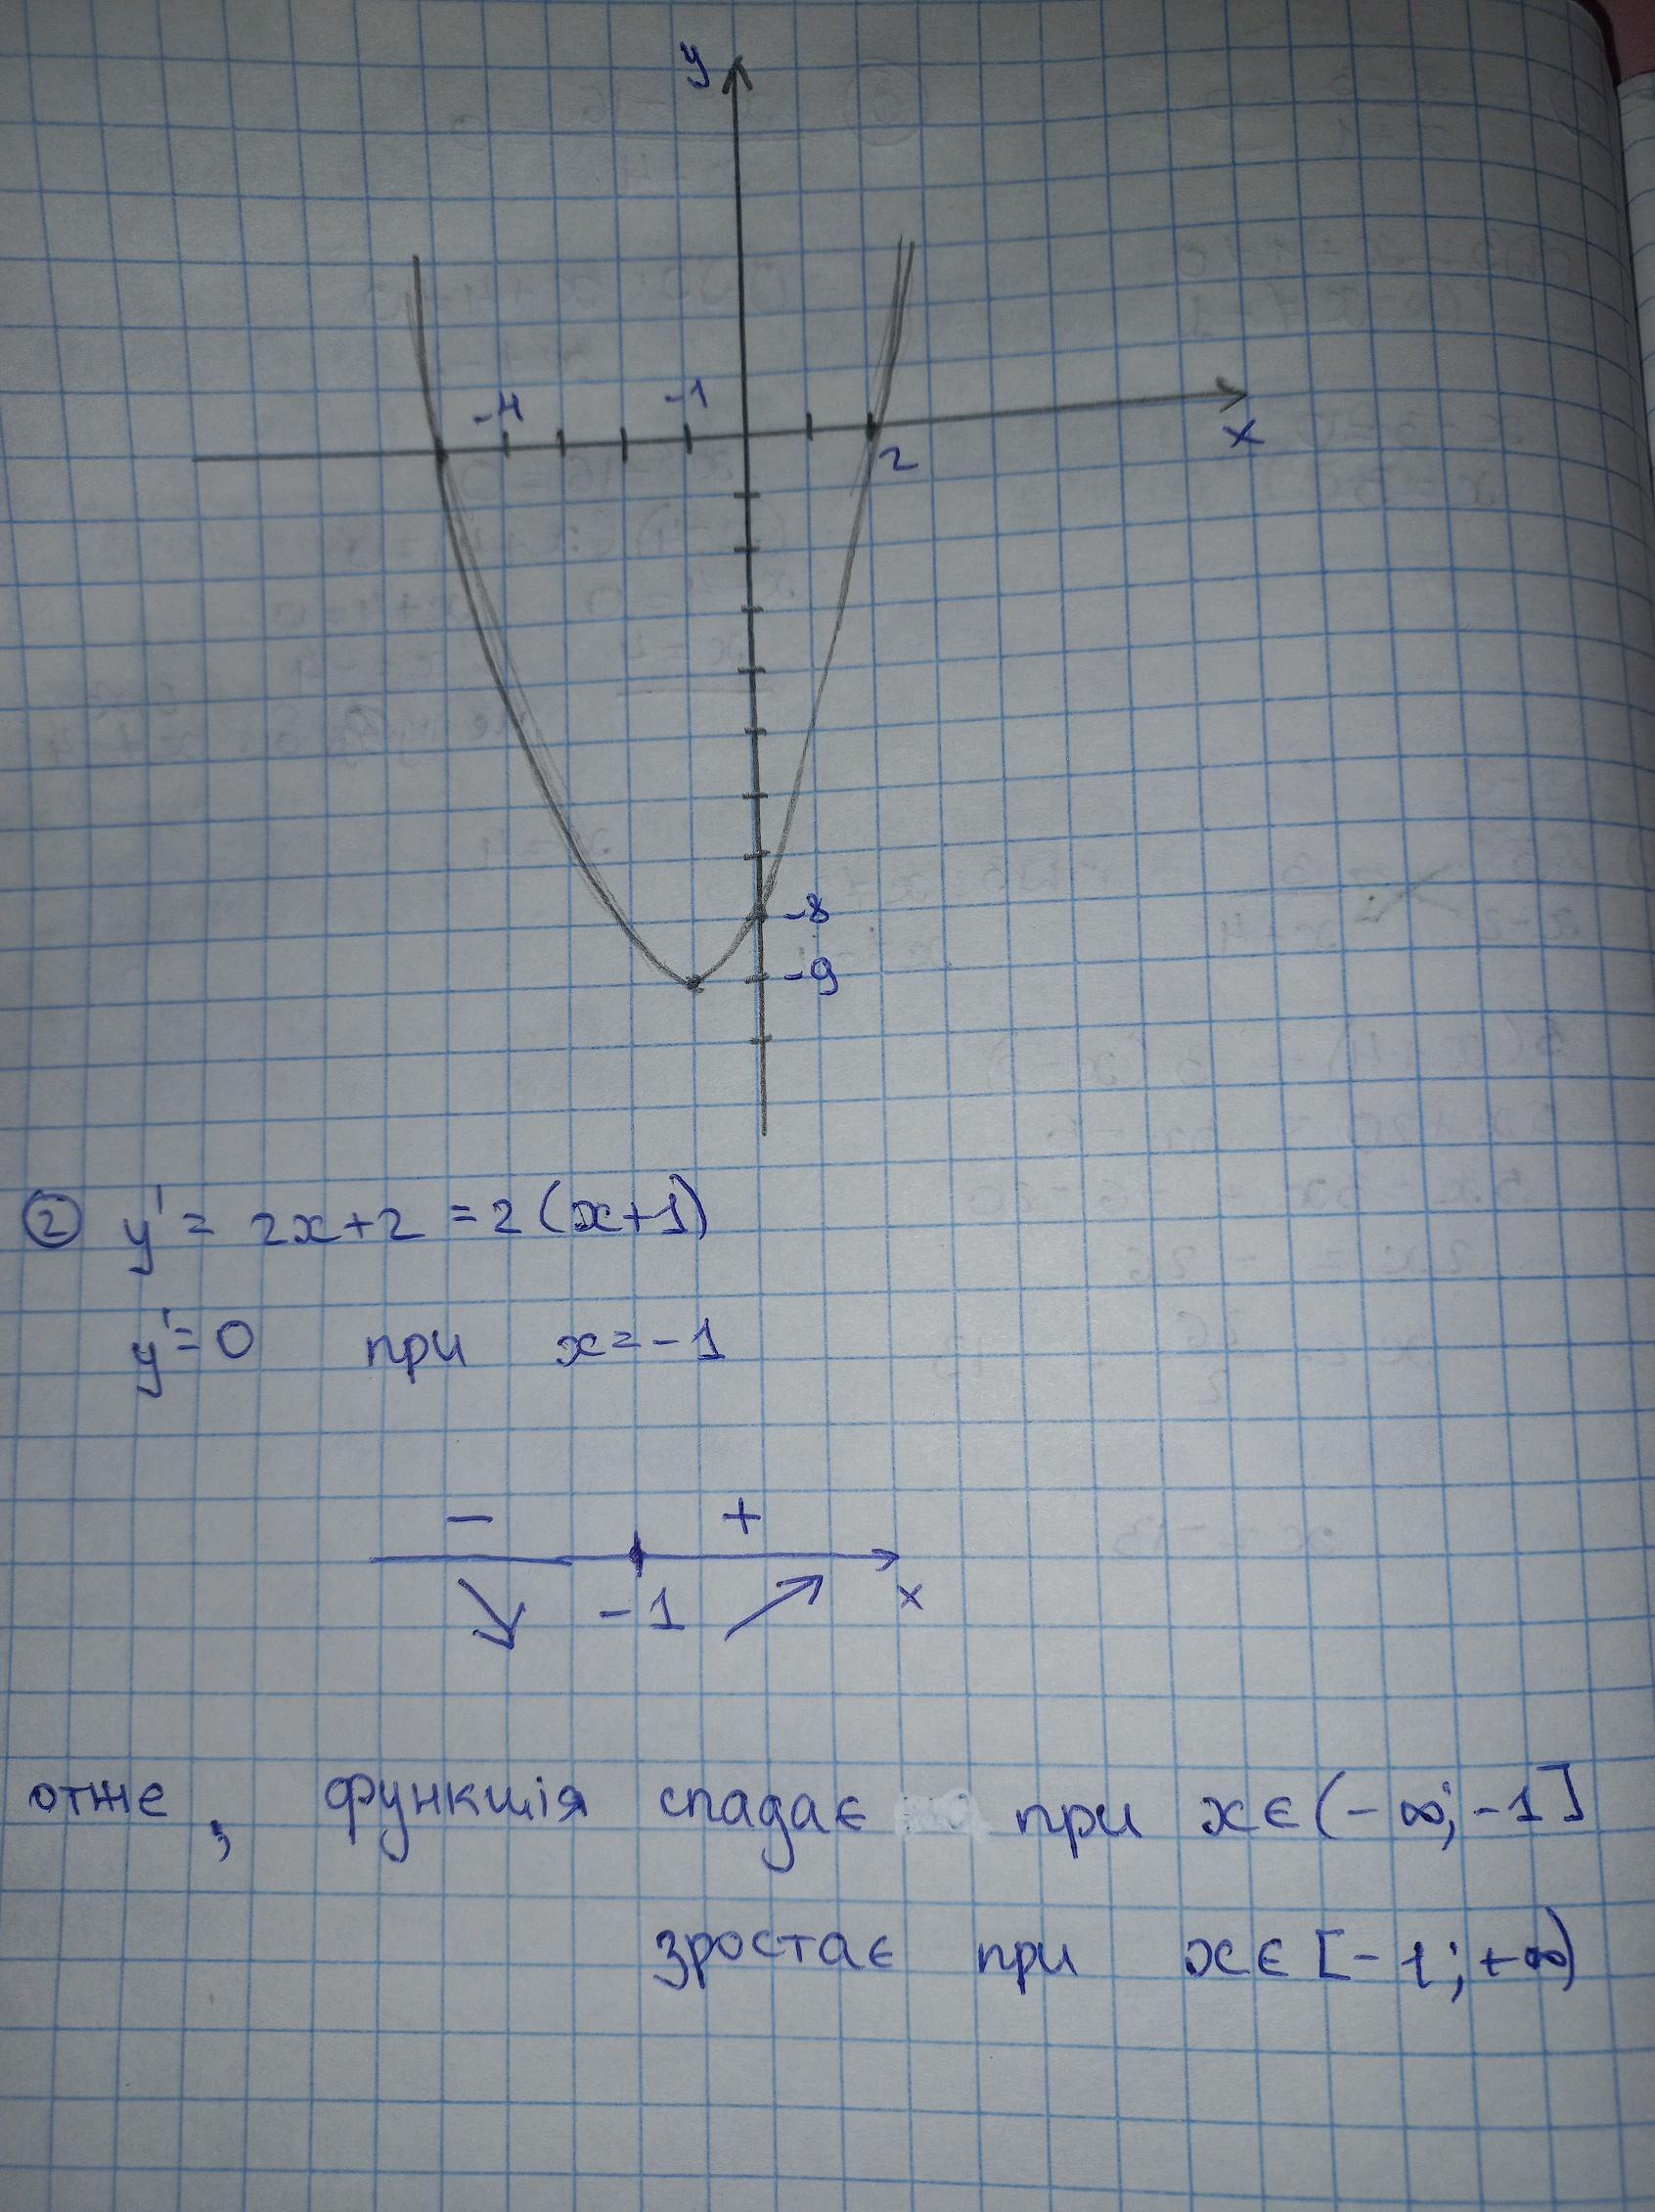 y
-4 -1
2 x
-8
-9
② y' = 2x+2 = 2(x+1)
y'=0 при x=-1
- +
-1 x
отже, функція спадає при x∈(-∞;-1]
зростає при x∈[-1;+∞)